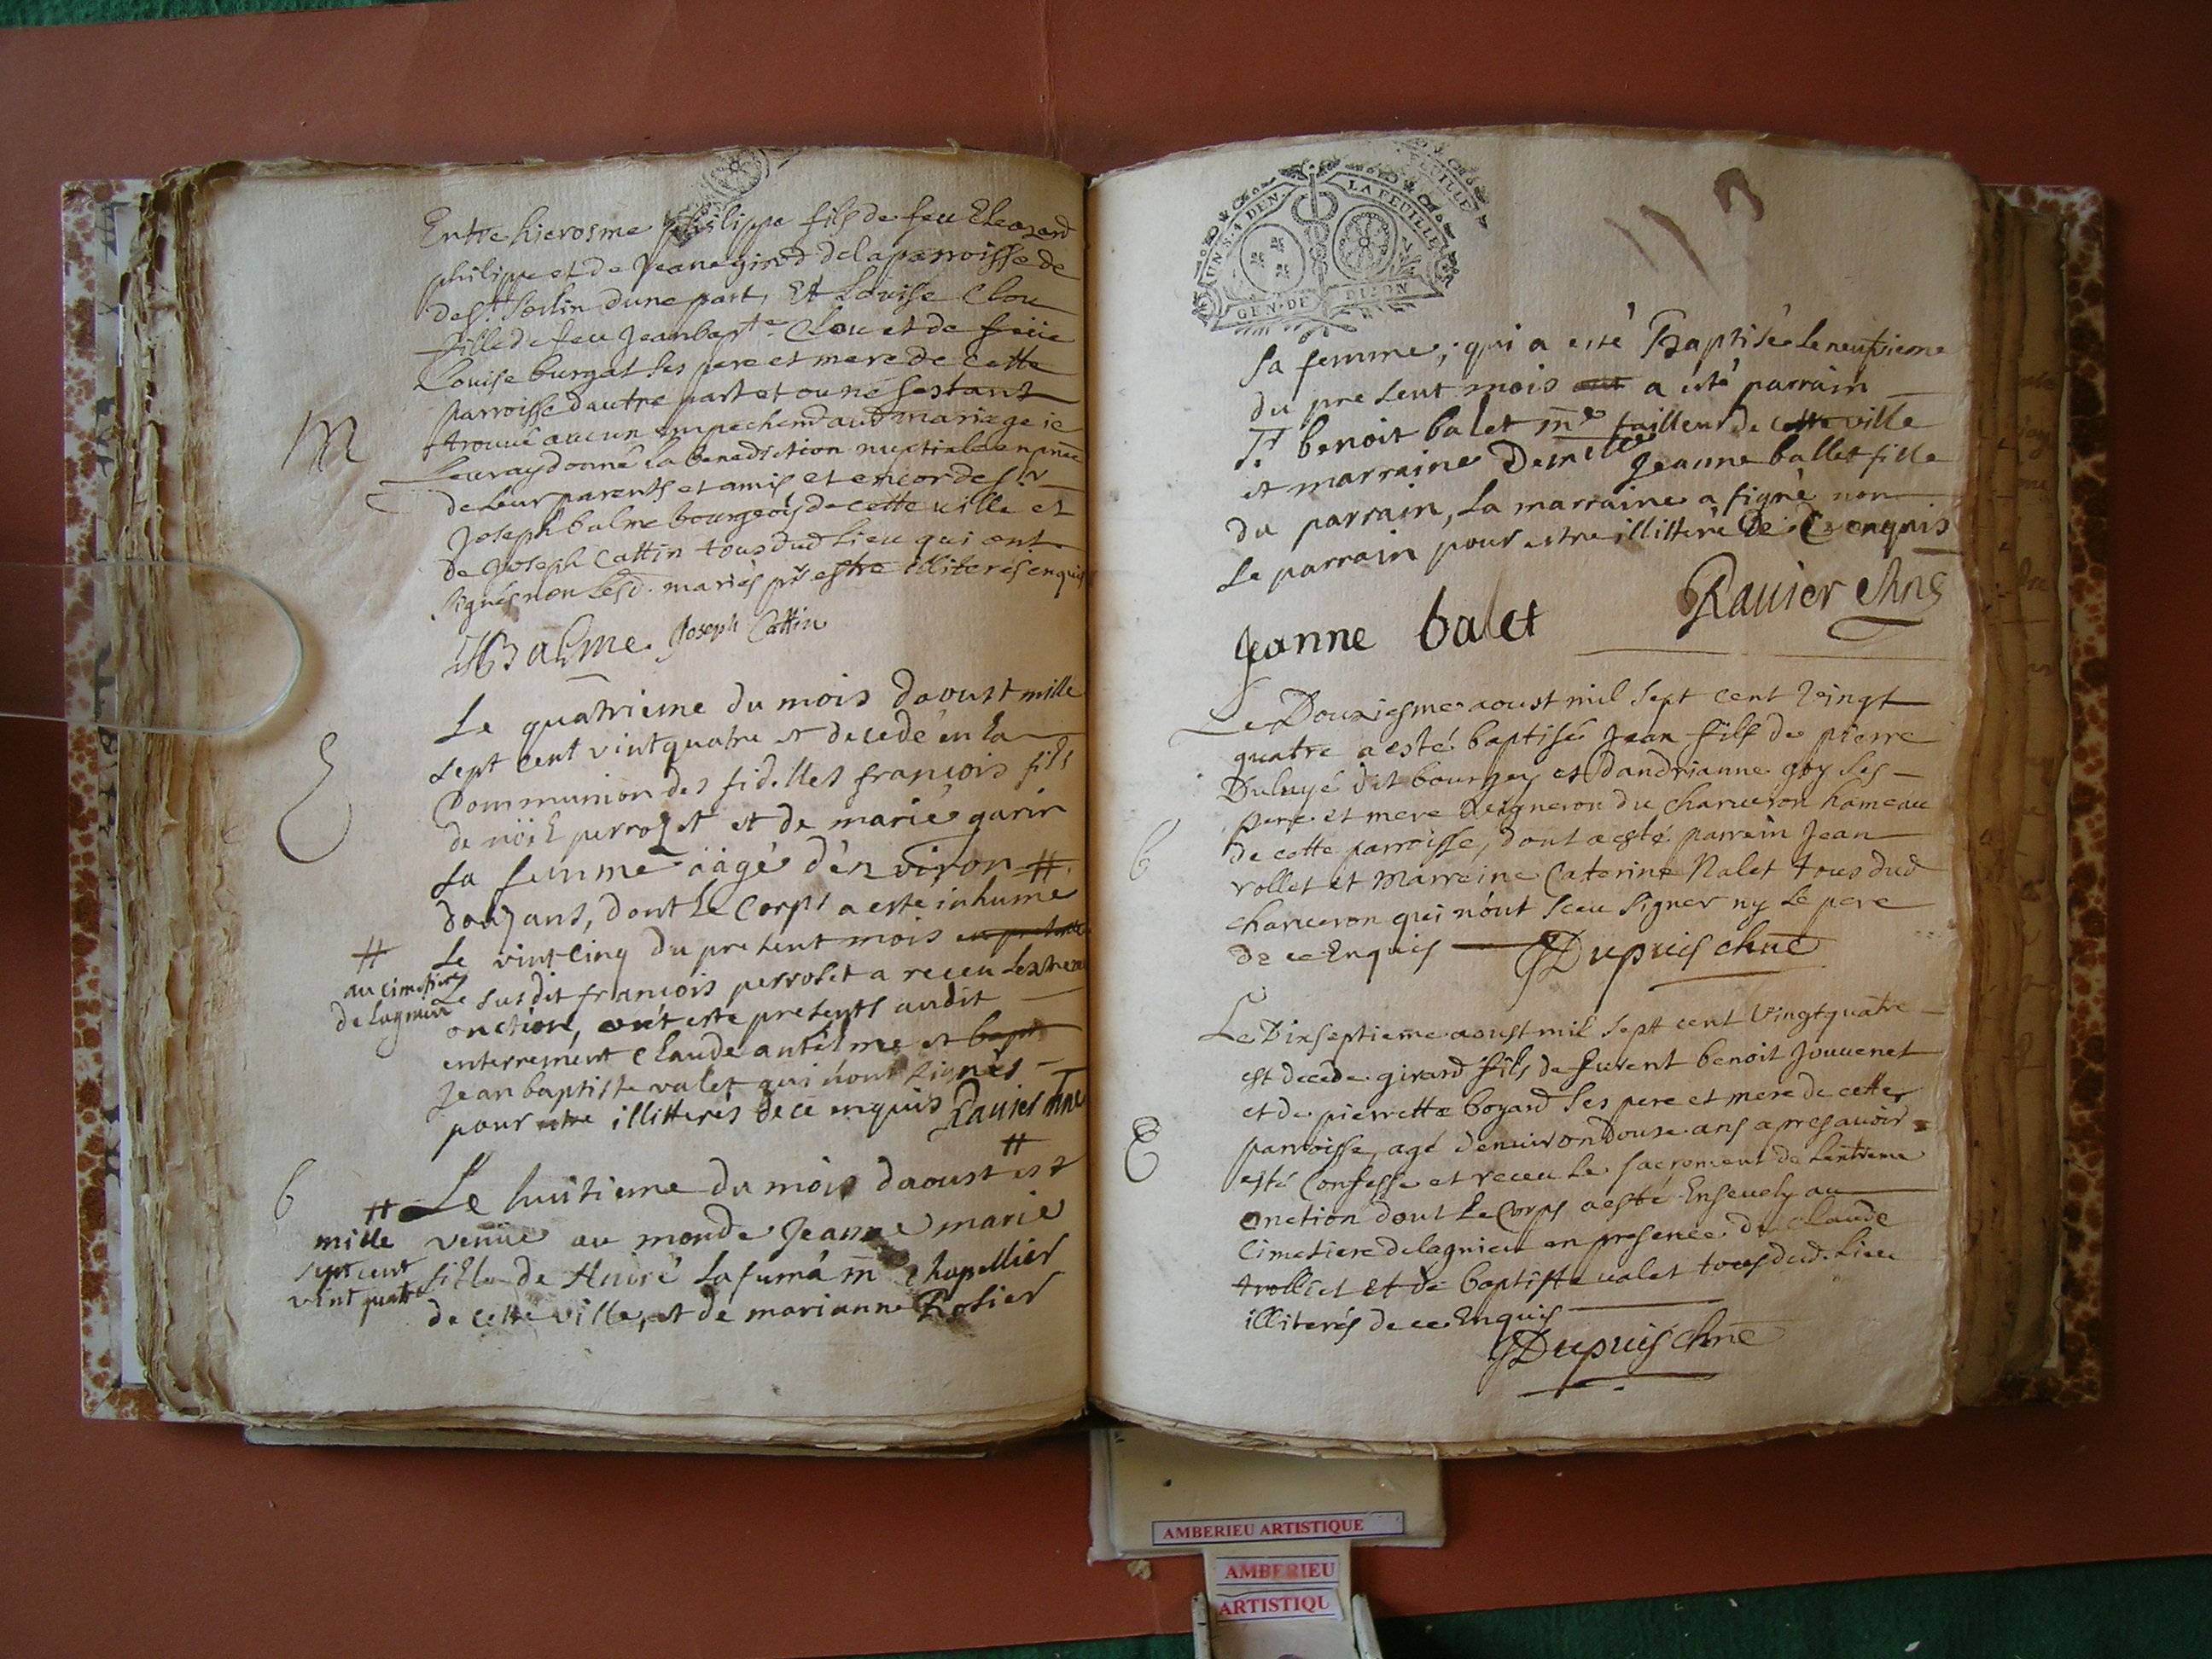 Entre hierosme philippe fils de feu Eleazard
philippe et de Jeane girod de la parroisse de
de St. Sorlin dune part, Et Louise Clou
fille de feu Jean bapte. Clou et de feüe
Louise burgat ses pere et mere de cette
parroisse dautre part et ou ne sestant
trouué aucun empechemt aud mariage je
leur ay donné la benediction nuptiale en pnce
de leur parents et amis et encor de sr.
Joseph balme bourgeois de cette uille et
de Joseph Cattin tous dud Lieu qui ont
signés non lesd. mariés pr estre illiterés enquis
M
JBalme. Joseph Cattin
Le quatrieme du mois daoust mille
sept cent vint quatre et decedé en la
Communion des fidelles françois fils
de noël perrozet et de marie garin
sa femme aagé d'environ #
douz ans, dont le Corps a esté inhumé
Le vint cinq du present mois
# au cimetiere de Lagnieu
Le susdit françois perroset a receu lextreme
onction, ont esté presents audit
enterrement Claude antelme et bapt
Jean baptiste valet qui n'ont signés
pour estre illitterés de ce enquis Rauier chne
#
b
Le huitieme du mois daoust est
# mille
sept cent
vint quatre
venüe au monde Jeanne marie
fille de André Lafuma me Chapellier
de cette ville, et de marianne Rosier
UN S. 4 DEN. LA FEUILLE
GEN. DE DIJON
113
sa femme, qui a esté Baptisée le neufvieme
du present mois ont a ésté parrain
Sr. benoit balet me tailleur de cette ville
et marraine Demlle Jeanne ballet fille
du parrain, la marraine a signé non
Le parrain pour estre illitteré de ce enquis
Jeanne balet Rauier chne
Le Douziesme aoust mil sept cent vingt
quatre a esté baptisé Jean fils de pierre
Duluyé dit boursey et dandrianne goy ses
pere et mere vigneron du Charueron hameau
de cette parroisse, dont a esté parrein Jean
rollet et Marreine Caterine Nalet tous dud
b
Charueron qui n'ont sceu signer ny le pere
de ce Enquis GDupuis chne
Le Dixseptieme aoust mil sept cent Vingt quatre
est decede girard fils de furent benoit Jouuenet
et de pierrette bogard ses pere et mere de cette
parroisse, agé denuiron douze ans apres auoir
E
esté Confessé et receu le sacrement de Lextreme
onction dont le Corps a esté Enseuely au
Cimetiere de lagnieu en presence de Claude
trolliet et de baptiste ualet tous dud. Lieu
illiterés de ce Enquis
GDupuis chne
AMBERIEU ARTISTIQUE
AMBERIEU
ARTISTIQU